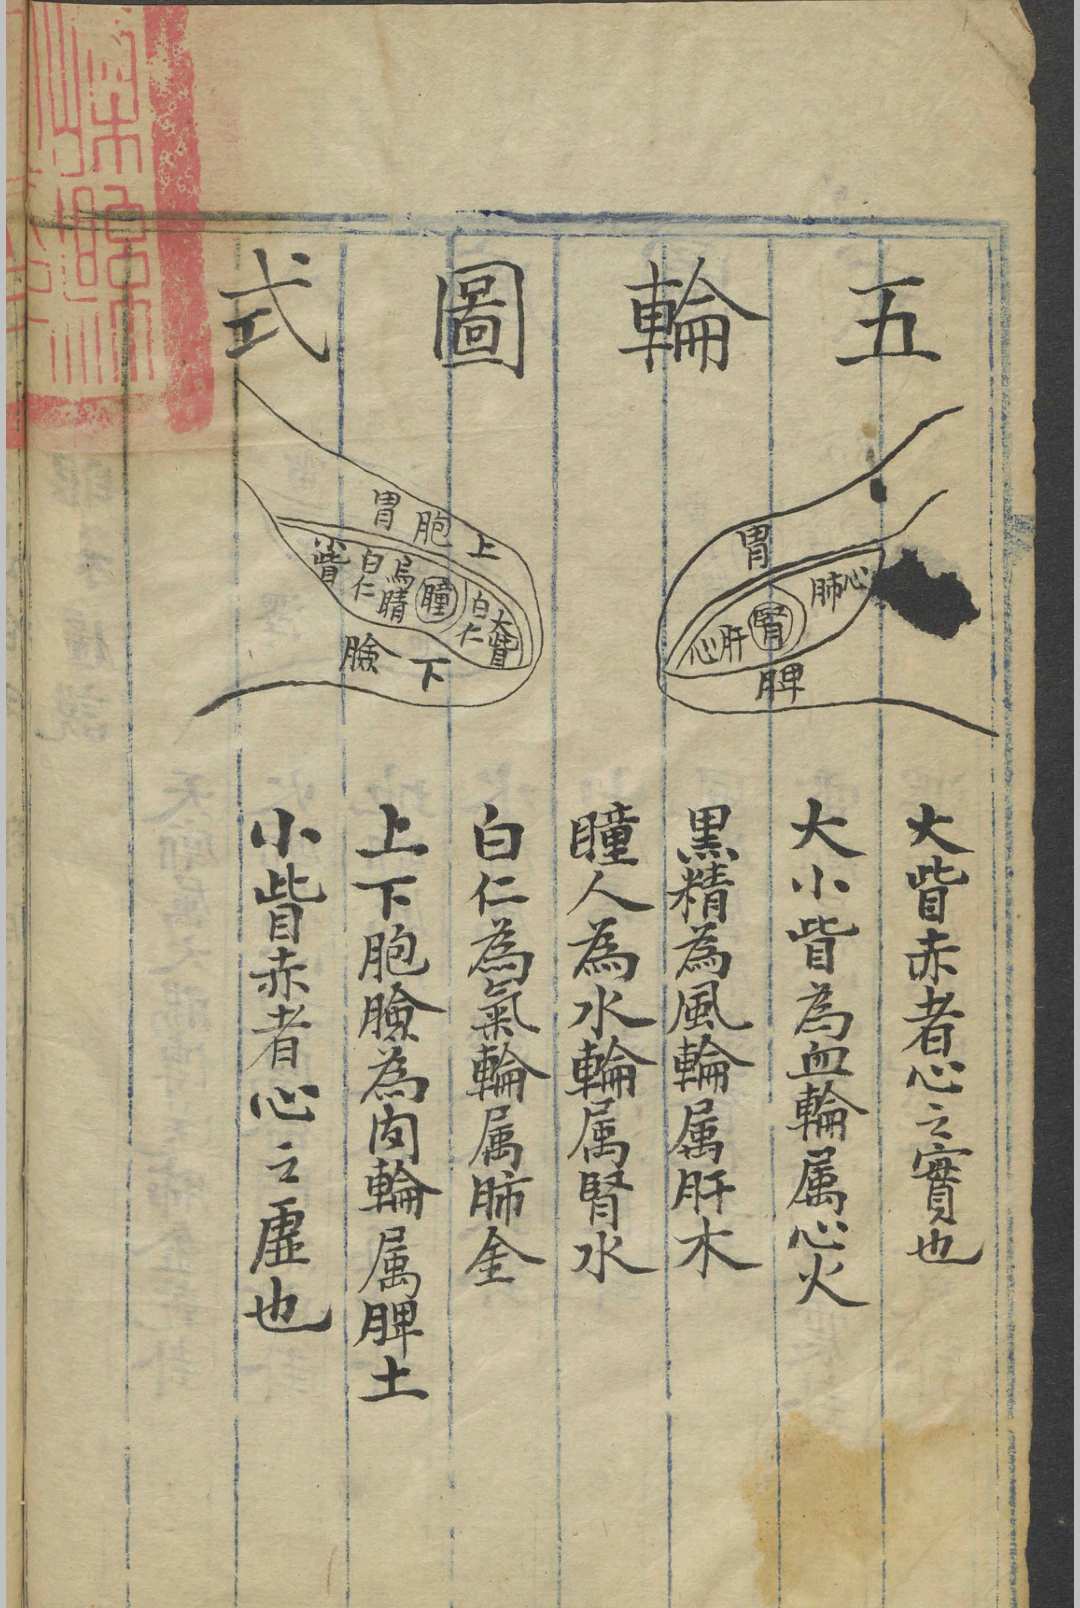 五輪圖式
胃
心
肺
腎
肝
心
脾
上
胞
胃
大眥
白仁
瞳
烏睛
白仁
小眥
下
臉
大眥赤者心之實也
大小眥為血輪属心火
黒精為風輪属肝木
瞳人為水輪属腎水
白仁為氣輪属肺金
上下胞臉為肉輪属脾土
小眥赤者心之虛也